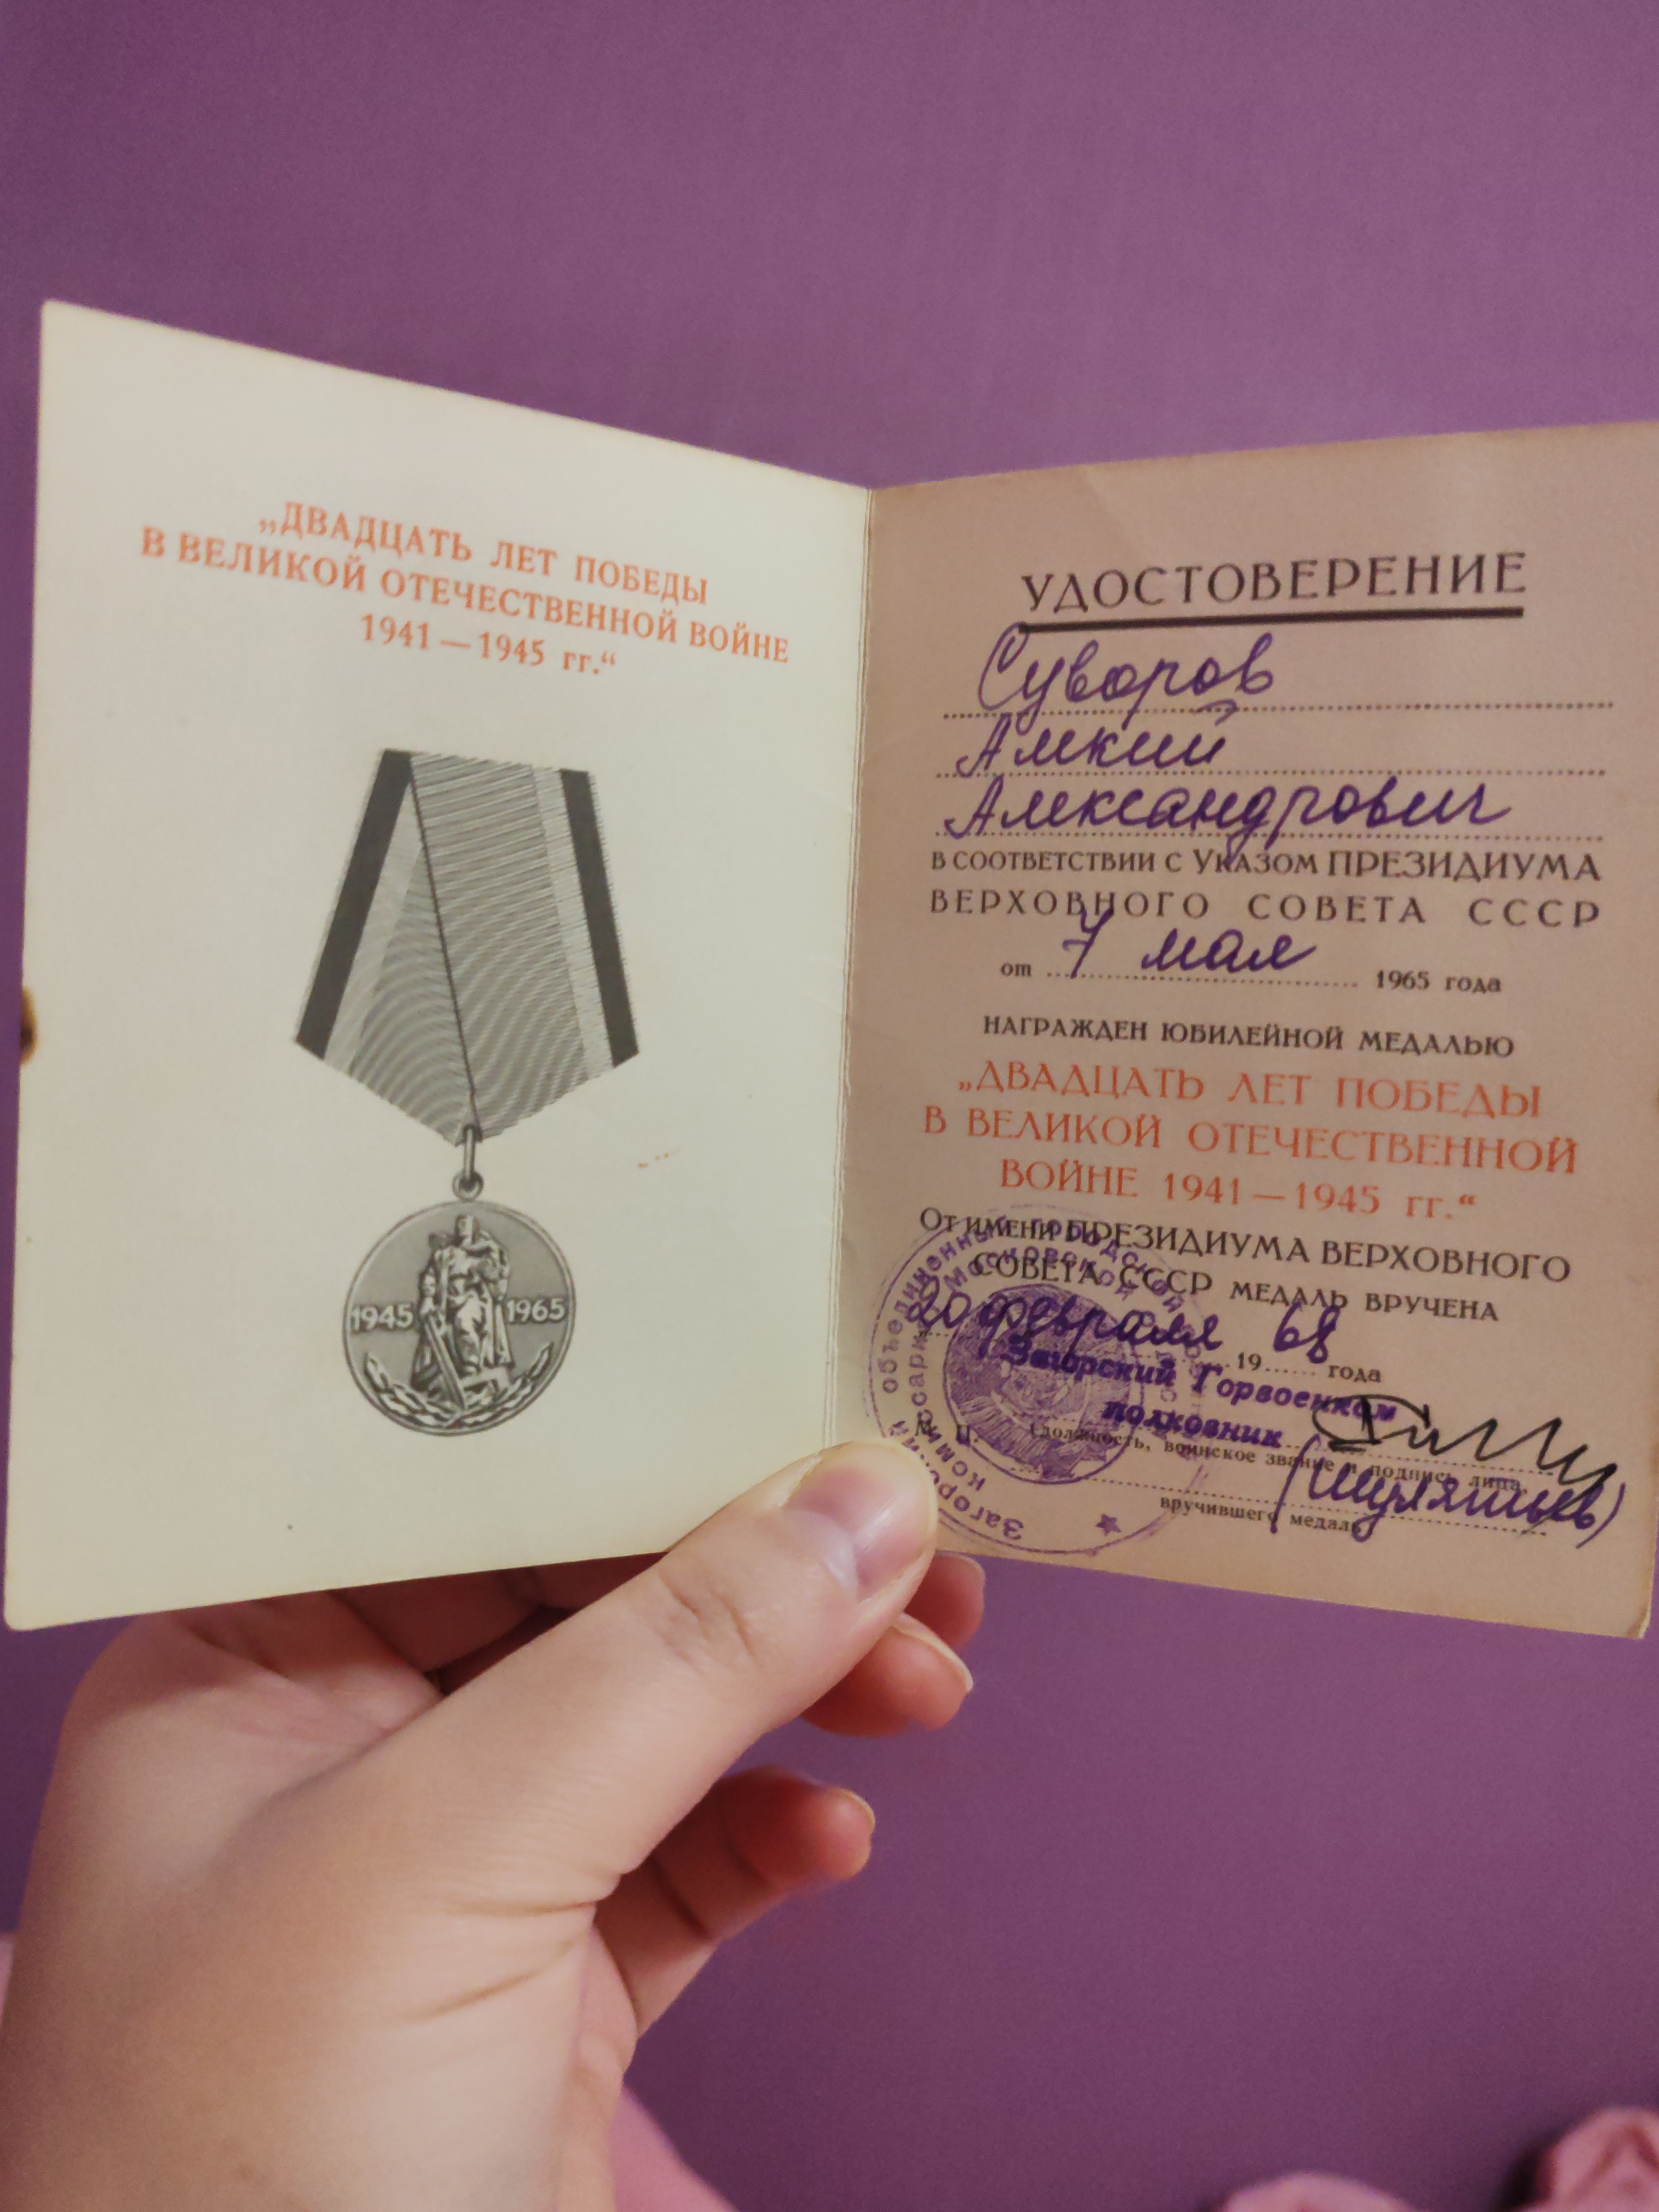 „ДВАДЦАТЬ ЛЕТ ПОБЕДЫ
В ВЕЛИКОЙ ОТЕЧЕСТВЕННОЙ ВОЙНЕ
1941—1945 гг.“
1945 1965
УДОСТОВЕРЕНИЕ
Суворов
Алкий
Александрович
В СООТВЕТСТВИИ С УКАЗОМ ПРЕЗИДИУМА
ВЕРХОВНОГО СОВЕТА СССР
от 7 мая 1965 года
НАГРАЖДЕН ЮБИЛЕЙНОЙ МЕДАЛЬЮ
„ДВАДЦАТЬ ЛЕТ ПОБЕДЫ
В ВЕЛИКОЙ ОТЕЧЕСТВЕННОЙ
ВОЙНЕ 1941—1945 гг.“
ОТ ИМЕНИ ПРЕЗИДИУМА ВЕРХОВНОГО
СОВЕТА СССР МЕДАЛЬ ВРУЧЕНА
20 февраля 1968 года
Загорский Горвоенком
полковник
М. П. (должность, воинское звание и подпись лица,
вручившего медаль)